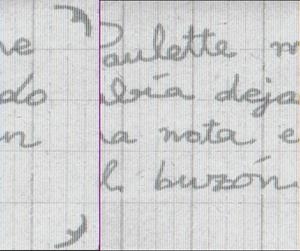 e Paulette m
do bía deja
n a nota e
l buzón